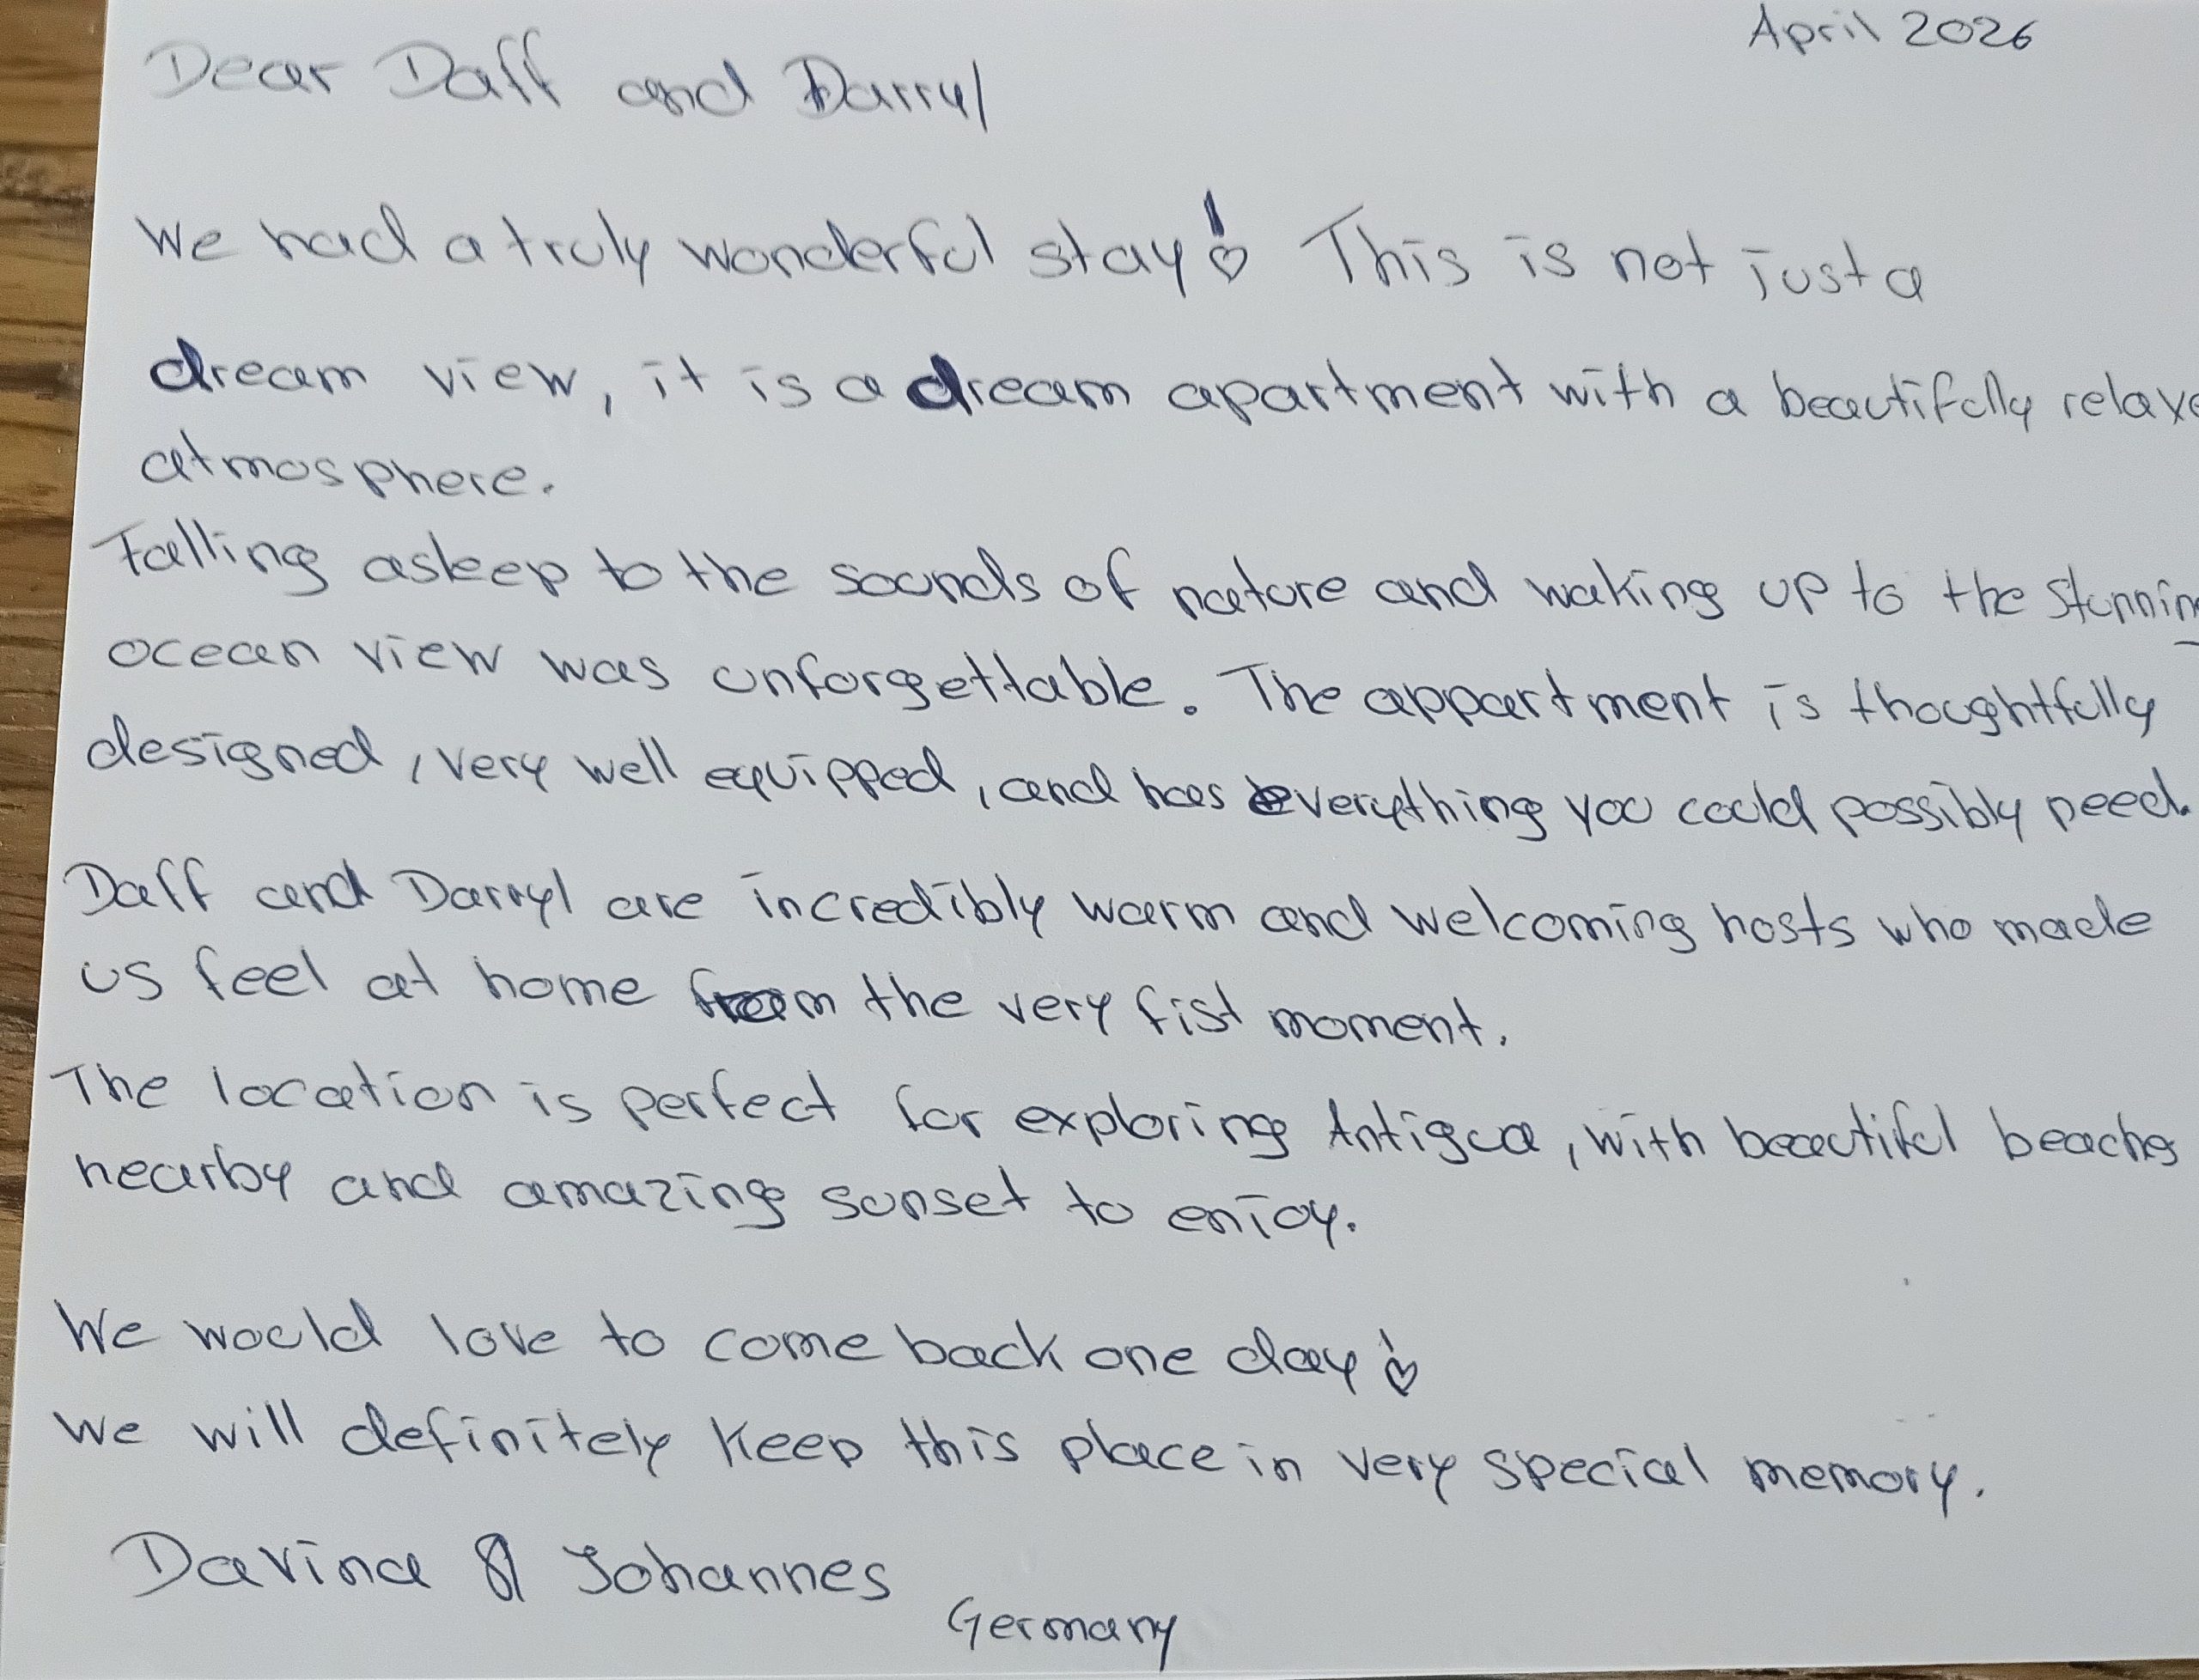 April 2026
Dear Daff and Darryl
We had a truly wonderful stay! This is not just a
dream view, it is a dream apartment with a beautifully relaxe
atmosphere.
Falling asleep to the sounds of nature and waking up to the stunnin
ocean view was unforgettable. The appartment is thoughtfully
designed, very well equipped, and has everything you could possibly need.
Daff and Darryl are incredibly warm and welcoming hosts who made
us feel at home from the very fist moment.
The location is perfect for exploring Antigua, with beautiful beaches
nearby and amazing sunset to enjoy.
We would love to come back one day!
We will definitely keep this place in very special memory.
Davina & Johannes
Germany